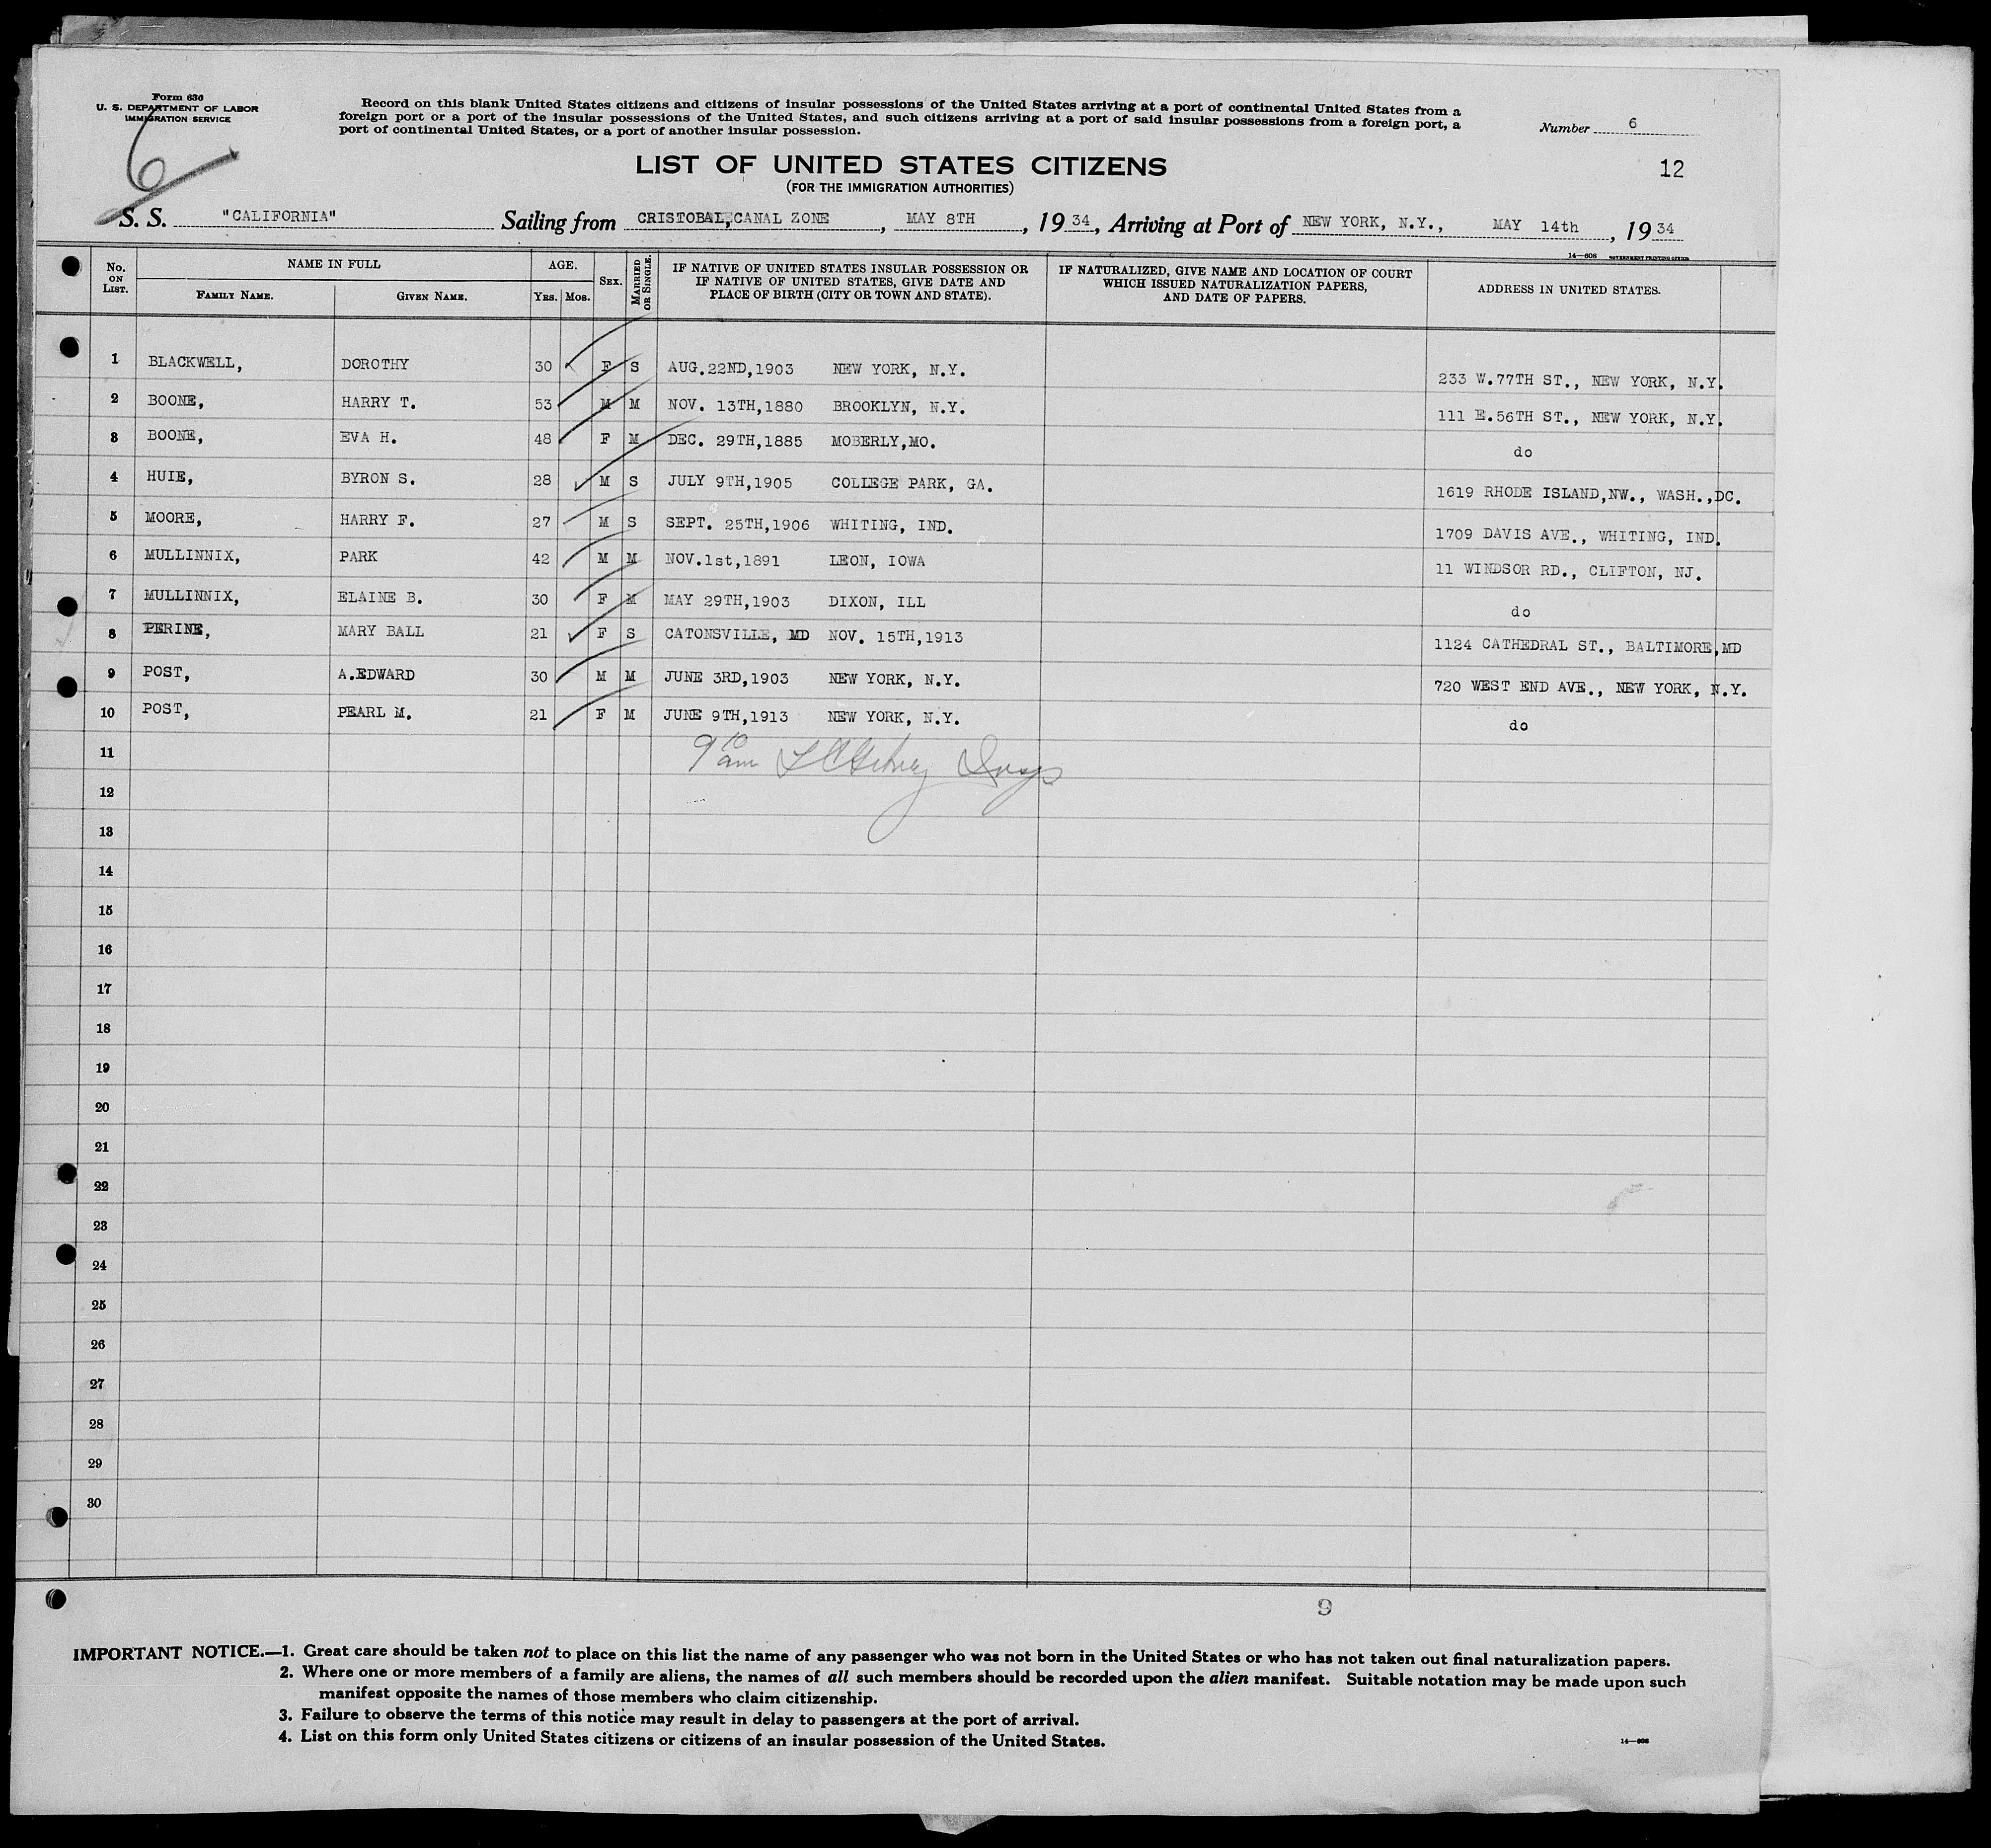 Form 630
U. S. DEPARTMENT OF LABOR
IMMIGRATION SERVICE
6
Record on this blank United States citizens and citizens of insular possessions of the United States arriving at a port of continental United States from a
foreign port or a port of the insular possessions of the United States, and such citizens arriving at a port of said insular possessions from a foreign port, a
port of continental United States, or a port of another insular possession.
Number 6
12
LIST OF UNITED STATES CITIZENS
(FOR THE IMMIGRATION AUTHORITIES)
S. S. "CALIFORNIA" Sailing from CRISTOBAL, CANAL ZONE, MAY 8TH, 1934, Arriving at Port of NEW YORK, N.Y., MAY 14th, 1934
14—608 GOVERNMENT PRINTING OFFICE
No. ON LIST. NAME IN FULL FAMILY NAME. GIVEN NAME. AGE. YRS. MOS. SEX. MARRIED OR SINGLE. IF NATIVE OF UNITED STATES INSULAR POSSESSION OR IF NATIVE OF UNITED STATES, GIVE DATE AND PLACE OF BIRTH (CITY OR TOWN AND STATE). IF NATURALIZED, GIVE NAME AND LOCATION OF COURT WHICH ISSUED NATURALIZATION PAPERS, AND DATE OF PAPERS. ADDRESS IN UNITED STATES.
1 BLACKWELL, DOROTHY 30 F S AUG.22ND,1903 NEW YORK, N.Y. 233 W.77TH ST., NEW YORK, N.Y.
2 BOONE, HARRY T. 53 M M NOV. 13TH,1880 BROOKLYN, N.Y. 111 E.56TH ST., NEW YORK, N.Y.
3 BOONE, EVA H. 48 F M DEC. 29TH,1885 MOBERLY,MO. do
4 HUIE, BYRON S. 28 M S JULY 9TH,1905 COLLEGE PARK, GA. 1619 RHODE ISLAND,NW., WASH.,DC.
5 MOORE, HARRY F. 27 M S SEPT. 25TH,1906 WHITING, IND. 1709 DAVIS AVE., WHITING, IND.
6 MULLINNIX, PARK 42 M M NOV.1st,1891 LEON, IOWA 11 WINDSOR RD., CLIFTON, NJ.
7 MULLINNIX, ELAINE B. 30 F M MAY 29TH,1903 DIXON, ILL do
8 PERINE, MARY BALL 21 F S CATONSVILLE, MD NOV. 15TH,1913 1124 CATHEDRAL ST., BALTIMORE,MD
9 POST, A.EDWARD 30 M M JUNE 3RD,1903 NEW YORK, N.Y. 720 WEST END AVE., NEW YORK, N.Y.
10 POST, PEARL M. 21 F M JUNE 9TH,1913 NEW YORK, N.Y. do
11 9 10 am
12
13
14
15
16
17
18
19
20
21
22
23
24
25
26
27
28
29
30
9
IMPORTANT NOTICE.—1. Great care should be taken not to place on this list the name of any passenger who was not born in the United States or who has not taken out final naturalization papers.
2. Where one or more members of a family are aliens, the names of all such members should be recorded upon the alien manifest. Suitable notation may be made upon such
manifest opposite the names of those members who claim citizenship.
3. Failure to observe the terms of this notice may result in delay to passengers at the port of arrival.
4. List on this form only United States citizens or citizens of an insular possession of the United States.
14—608